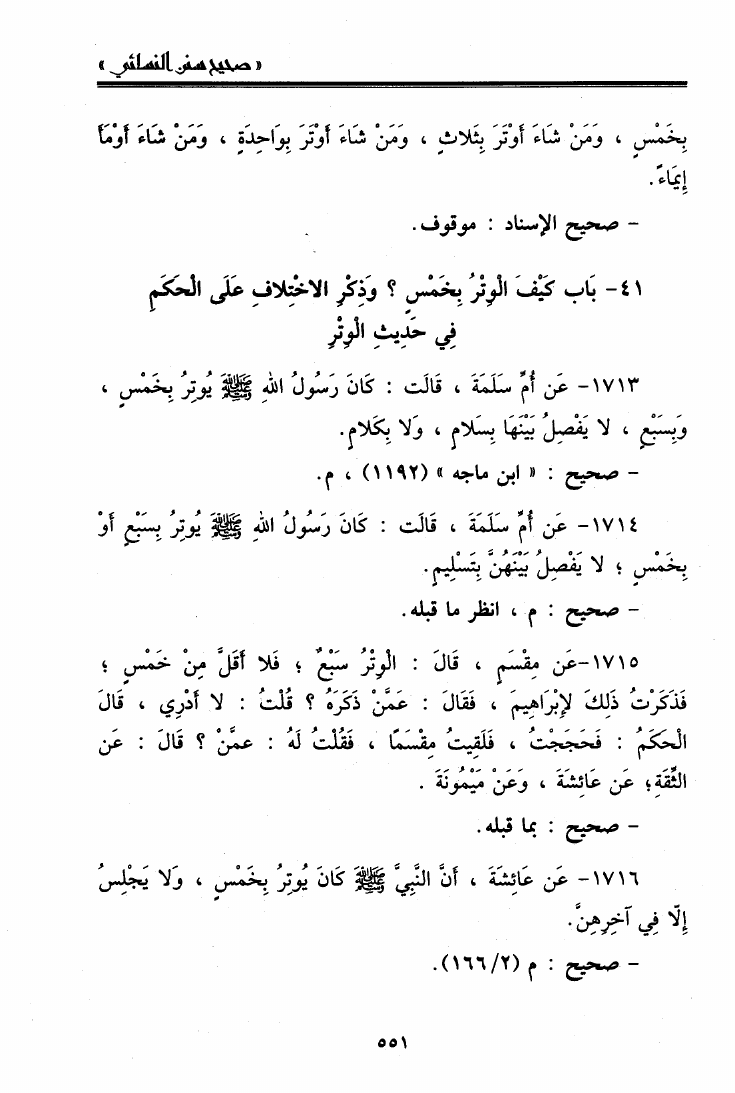 « صحيح سنن النسائي »
بِخَمْسٍ ، وَمَنْ شَاءَ أَوْتَرَ بِثَلاثٍ ، وَمَنْ شَاءَ أَوْتَرَ بِوَاحِدَةٍ ، وَمَنْ شَاءَ أَوْمَأَ
إِيمَاءً.
- صحيح الإسناد : موقوف.
٤١- بَاب كَيْفَ الْوِتْرُ بِخَمْسٍ ؟ وَذِكْرِ الاخْتِلافِ عَلَى الْحَكَمِ
فِي حَدِيثِ الْوِتْرِ
١٧١٣- عَن أُمِّ سَلَمَةَ ، قَالَت : كَانَ رَسُولُ اللهِ ﷺ يُوتِرُ بِخَمْسٍ ،
وَبِسَبْعٍ ، لا يَفْصِلُ بَيْنَهَا بِسَلامٍ ، وَلا بِكَلامٍ.
- صحيح : « ابن ماجه » (١١٩٢) ، م.
١٧١٤- عَن أُمِّ سَلَمَةَ ، قَالَت : كَانَ رَسُولُ اللهِ ﷺ يُوتِرُ بِسَبْعٍ أَوْ
بِخَمْسٍ ؛ لا يَفْصِلُ بَيْنَهُنَّ بِتَسْلِيمٍ.
- صحيح : م ، انظر ما قبله.
١٧١٥-عَن مِقْسَمٍ ، قَالَ : الْوِتْرُ سَبْعٌ ؛ فَلا أَقَلَّ مِنْ خَمْسٍ ؛
فَذَكَرْتُ ذَلِكَ لإِبْرَاهِيمَ ، فَقَالَ : عَمَّنْ ذَكَرَهُ ؟ قُلْتُ : لا أَدْرِي ، قَالَ
الْحَكَمُ : فَحَجَجْتُ ، فَلَقِيتُ مِقْسَمًا ، فَقُلْتُ لَهُ : عمَّنْ ؟ قَالَ : عَن
الثِّقَةِ؛ عَن عَائِشَةَ ، وَعَنْ مَيْمُونَةَ .
- صحيح : بما قبله.
١٧١٦- عَن عَائِشَةَ ، أَنَّ النَّبِيَّ ﷺ كَانَ يُوتِرُ بِخَمْسٍ ، وَلا يَجْلِسُ
إِلّا فِي آخِرِهِنَّ.
- صحيح : م (١٦٦/٢).
٥٥١